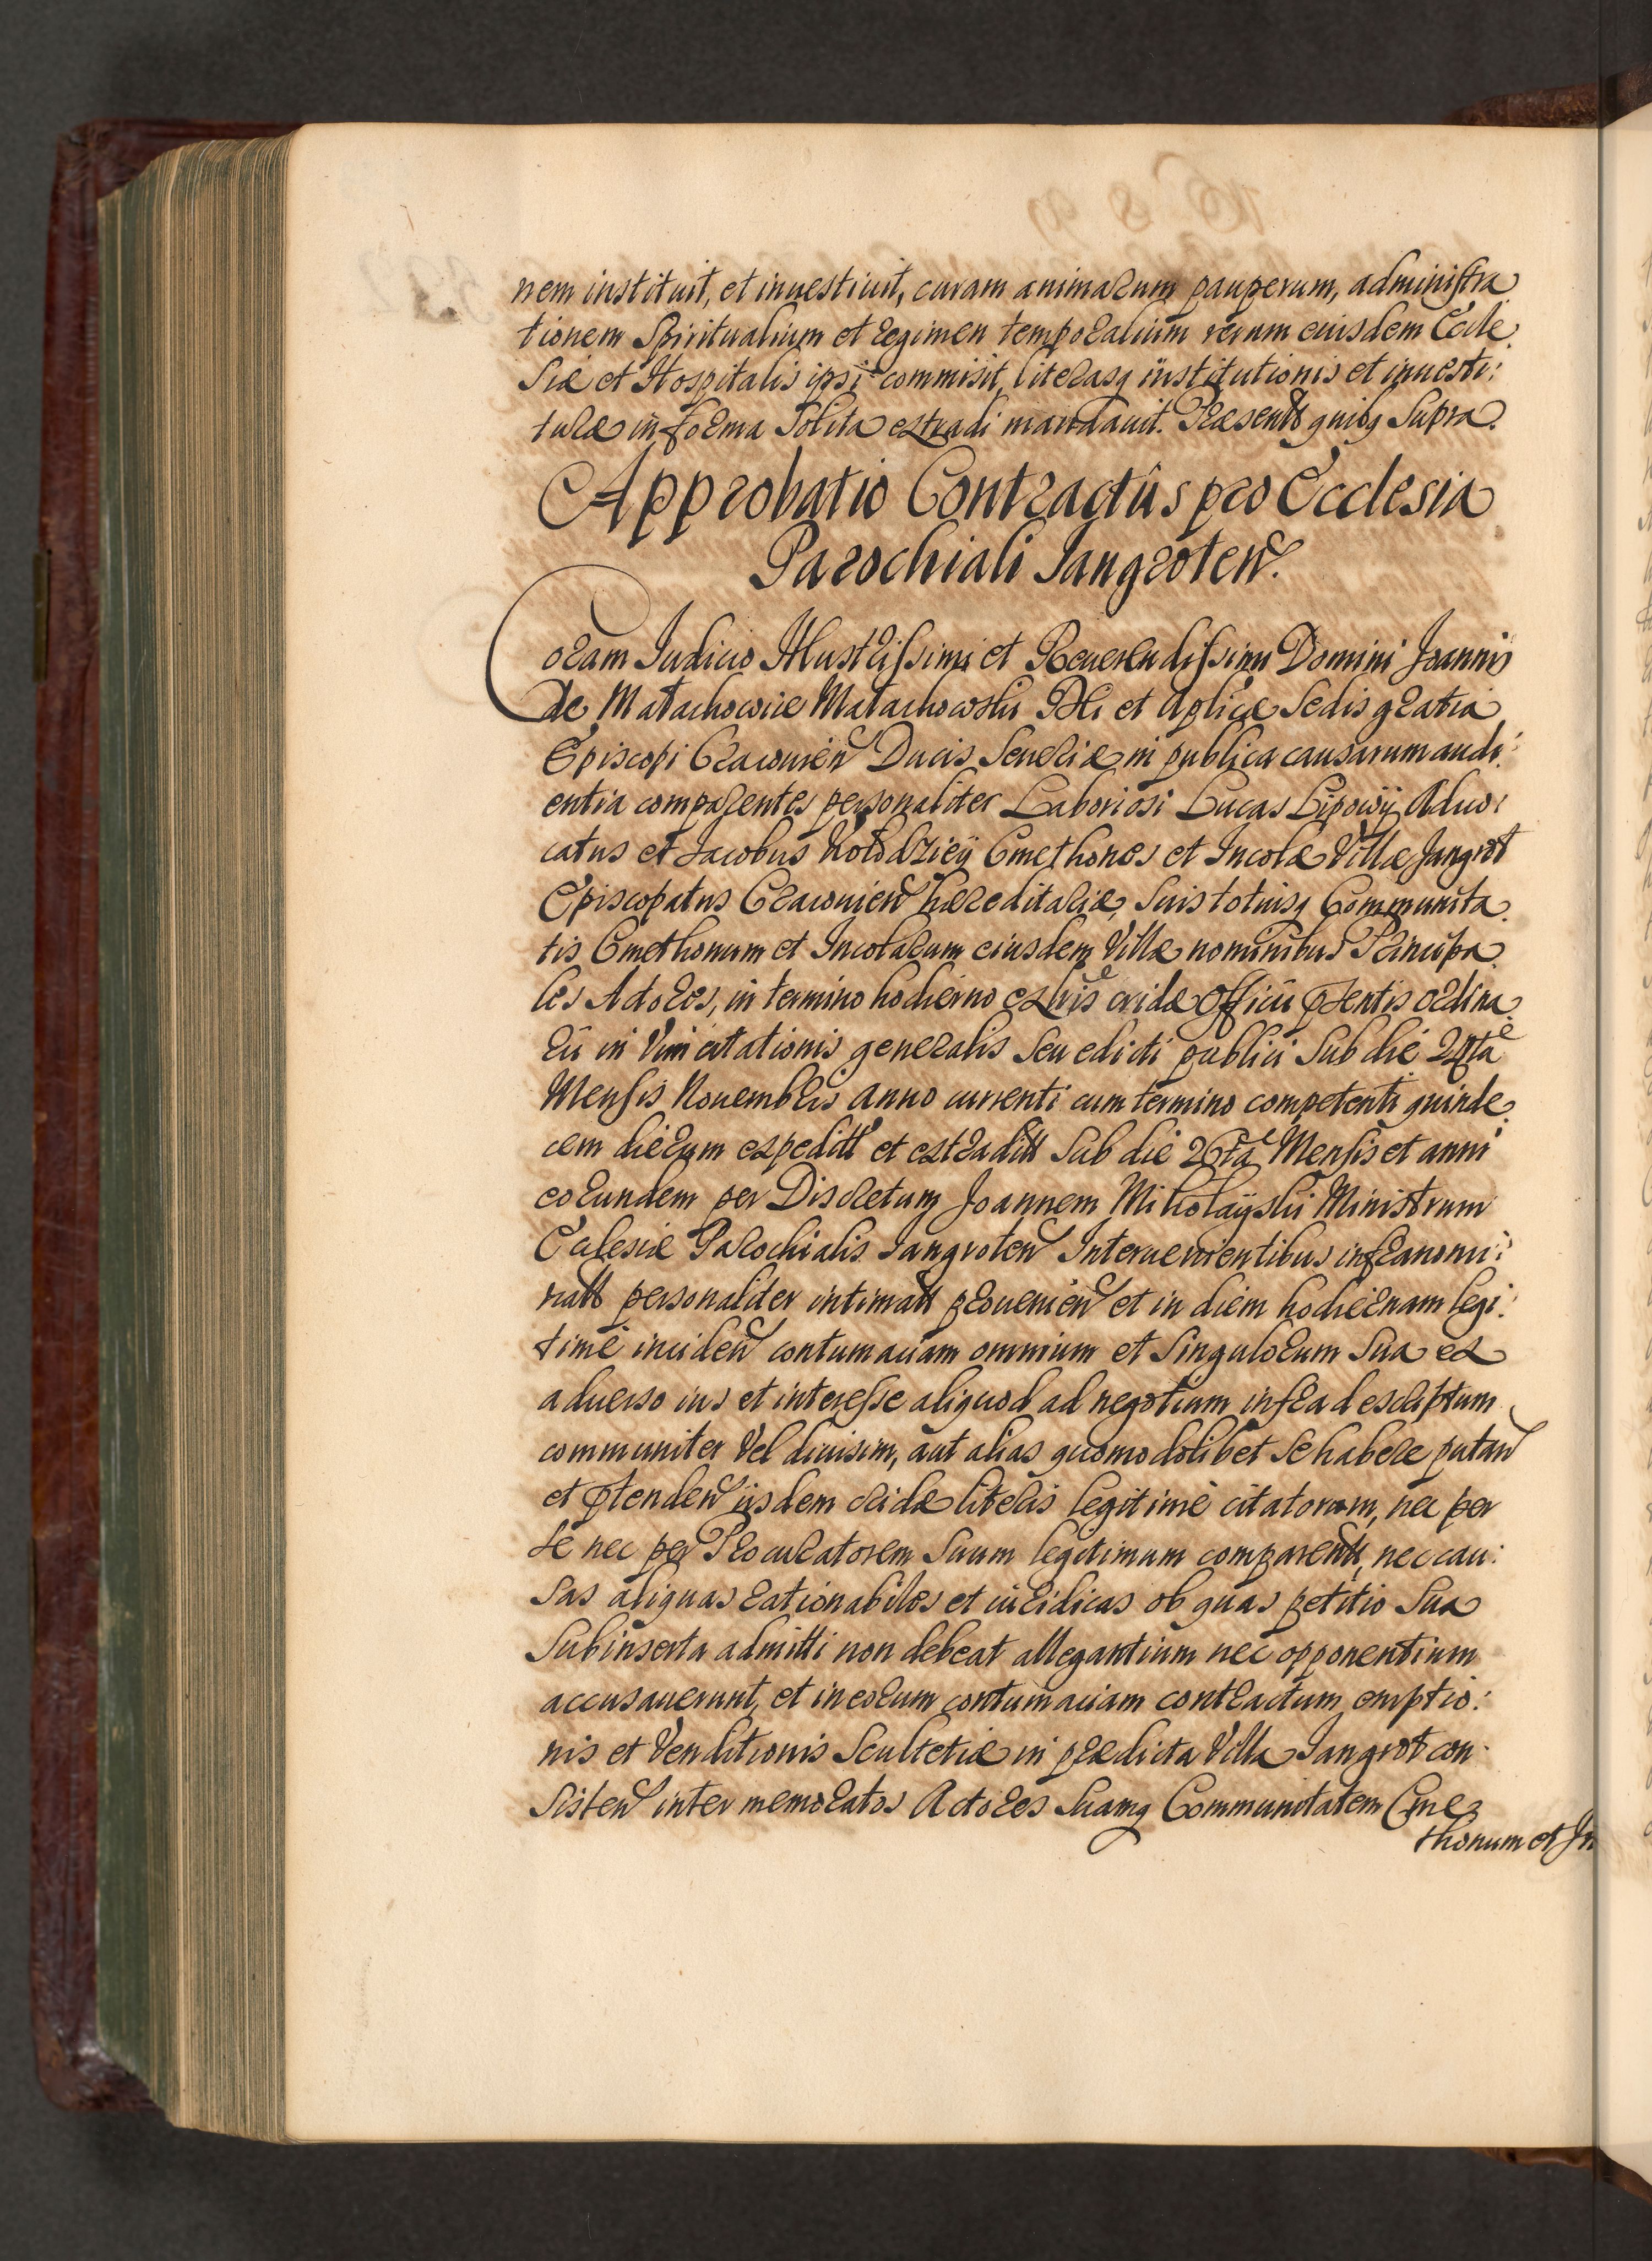 nem instituit, et inuestiuit, curam animarum pauperum, administra
tionem Spiritualium et regimen temporalium rerum eiusdem Eccle
siæ et Hospitalis ipsi commisit, literasq institutionis et inuesti:
turæ in forma Solita extradi mandauit. Præsentt quibq Supra.
Approbatio Contractûs pro Ecclesia
Parochiali Jangroten.
Coram Iudicio Illustrissimi et Reuerendissimi Domini Joannis
de Małachowice Małachowski Dei et Aplicæ Sedis gratia
Episcopi Cracouien Ducis Seueriæ in publica causarum audi:
entia comparentes personaliter Laboriosi Lucas Lipowÿ Aduo:
catus et Jacobus Kołodzieÿ Cmethones et Incolæ Villæ Jangrot
Episcopatus Cracouien hæreditariæ, Suis totiusq Communita
tis Cmethonum et Incolarum eiusdem Villæ nominibus Principa
les Actores, in termino hodierno ex lris cridæ Officii pntis ordina
rii in Vim citationis generalis Seu edicti publici Sub die 24ta
Mensis Nouembris anno currenti cum termino competenti quinde
cem dierum expeditt et extraditt Sub die 26ta Mensis et anni
eorundem per Discretum Joannem Mikołaÿski Ministrum
Ecclesiæ Parochialis Jangroten Interuenientibus infranomi:
natt personaliter intimatt prouenien et in diem hodiernam legi:
timè inciden contumaciam omnium et Singulorum Sua ex
aduerso ius et interesse aliquod ad negotium infra descriptum
communiter Vel diuisim, aut alias quomodolibet Se habere putan
et ptenden iisdem cridæ literis legitimè citatorum, nec per
Se nec per Procuratorem Suum legitimum comparentt, nec cau:
Sas aliquas rationabiles et iuridicas ob quas petitio Sua
Subinserta admitti non debeat allegantium nec opponentium
accusauerunt, et in eorum contumaciam contractum emptio:
nis et Venditionis Scultetiæ in prædicta Villa Jangrot con
Sisten inter memoratos Actores Suamq Communitatem Cme
thonum et In